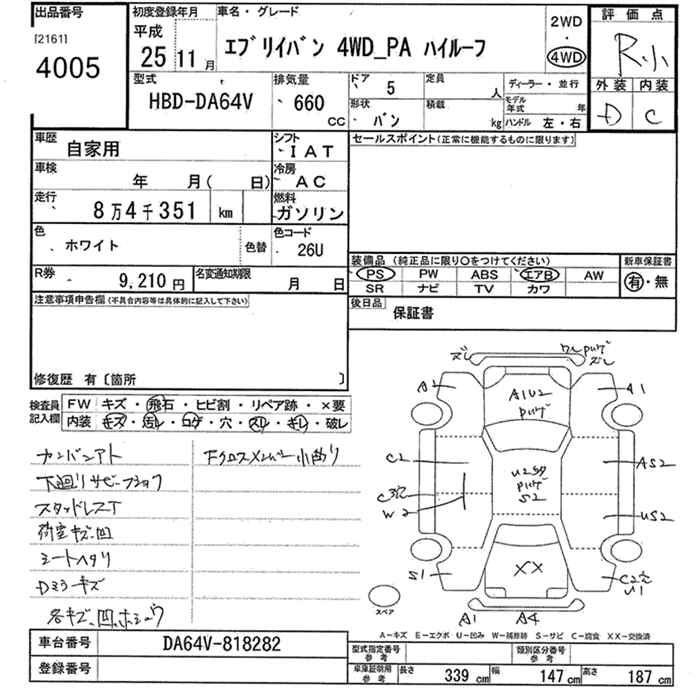 出品番号
[2161]
4005
初度登録年月
平成
25 11月
車名・グレード
エブリイバン 4WD_PA ハイルーフ
2WD
・
4WD
評価点
R小
外装 内装
D C
型式
HBD-DA64V
排気量
660
CC
ドア 5
定員 人
形状 バン
積載 kg
ディーラー・並行
モデル年式 年
ハンドル 左・右
車歴
自家用
シフト
IAT
車検
年 月( 日)
冷房
AC
走行
8万4千351 km
燃料
ガソリン
色
ホワイト
色替
色コード
26U
R券
9,210円
名変通知期限
月 日
セールスポイント(正常に機能するものに限ります)
装備品 (純正品に限り○をつけてください)
PS PW ABS エアB AW
SR ナビ TV カワ
新車保証書
有・無
後日品
保証書
注意事項申告欄(不具合内容等は具体的に記入して下さい)
修復歴 有〔箇所 〕
検査員記入欄
FW キズ・飛石・ヒビ割・リペア跡・×要
内装 キズ・汚レ・コゲ・穴・スレ・キレ・破レ
カンバンアト
下廻りサビ
スタッドレスT
荷室キズ凹
シートヘタリ
Dミラーキズ
各キズ、凹
Fクロスメンバー小曲り
ズレ
ズレ
A2
A1U2
A1
C2
U2
S2
AS2
C3穴
W2
US2
S1
XX
C2穴
U1
A1
A4
スペア
A－キズ E－エクボ U－凹み W－補修跡 S－サビ C－腐食 XX－交換済
車台番号
DA64V-818282
登録番号
型式指定番号 参考
類別区分番号 参考
車庫証明用 参考
長さ 339 cm 幅 147 cm 高さ 187 cm